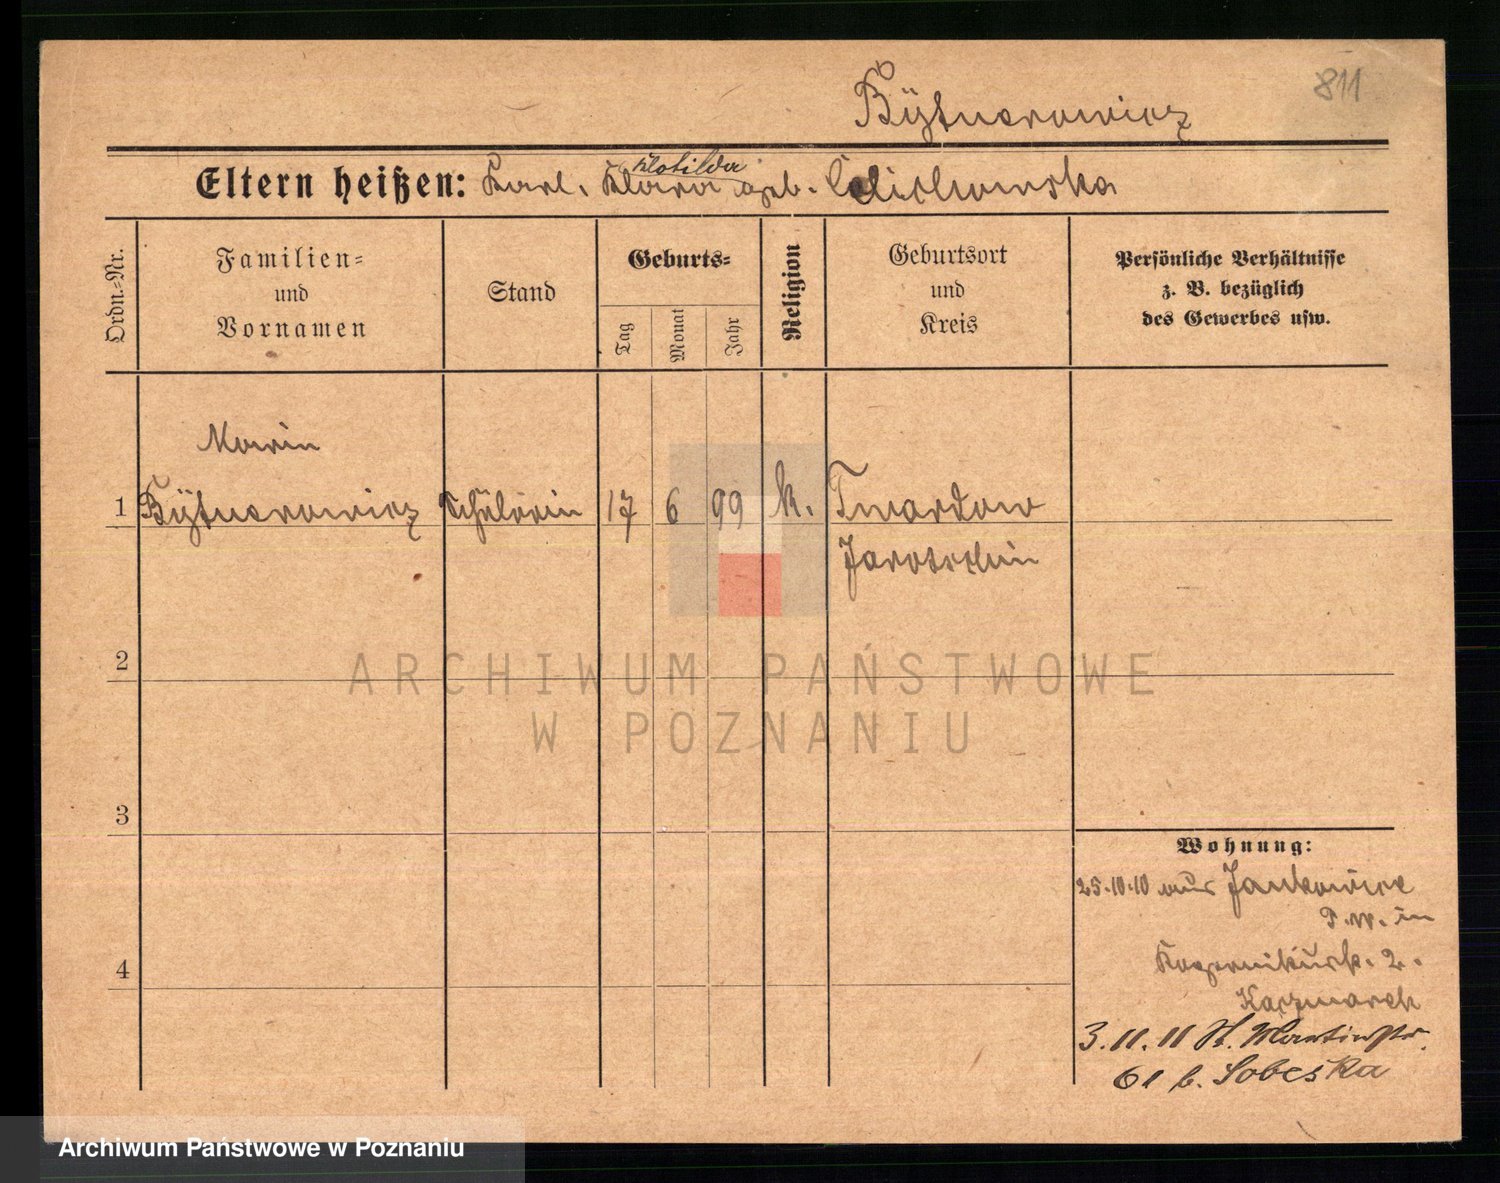 811
Bÿtnerowicz
Klotilda
Eltern heißen: Karl. Klara geb. Cichowska
Ordn.-Nr.
Familien-
und
Vornamen
Stand
Geburts-
Tag
Monat
Jahr
Religion
Geburtsort
und
Kreis
Persönliche Verhältnisse
z. B. bezüglich
des Gewerbes usw.
Marin
1 Bÿtnerowicz Schülerin 17 6 99 k. Twardow
Jarotschin
ARCHIWUM PAŃSTWOWE
W POZNANIU
2
3
4
Wohnung:
25.10.10 aus Jankowice
P.W. in
Kopernikusstr. 2.
Kaczmarek
3.11.11 St. Martinstr.
61 b. Sobeska
Archiwum Państwowe w Poznaniu